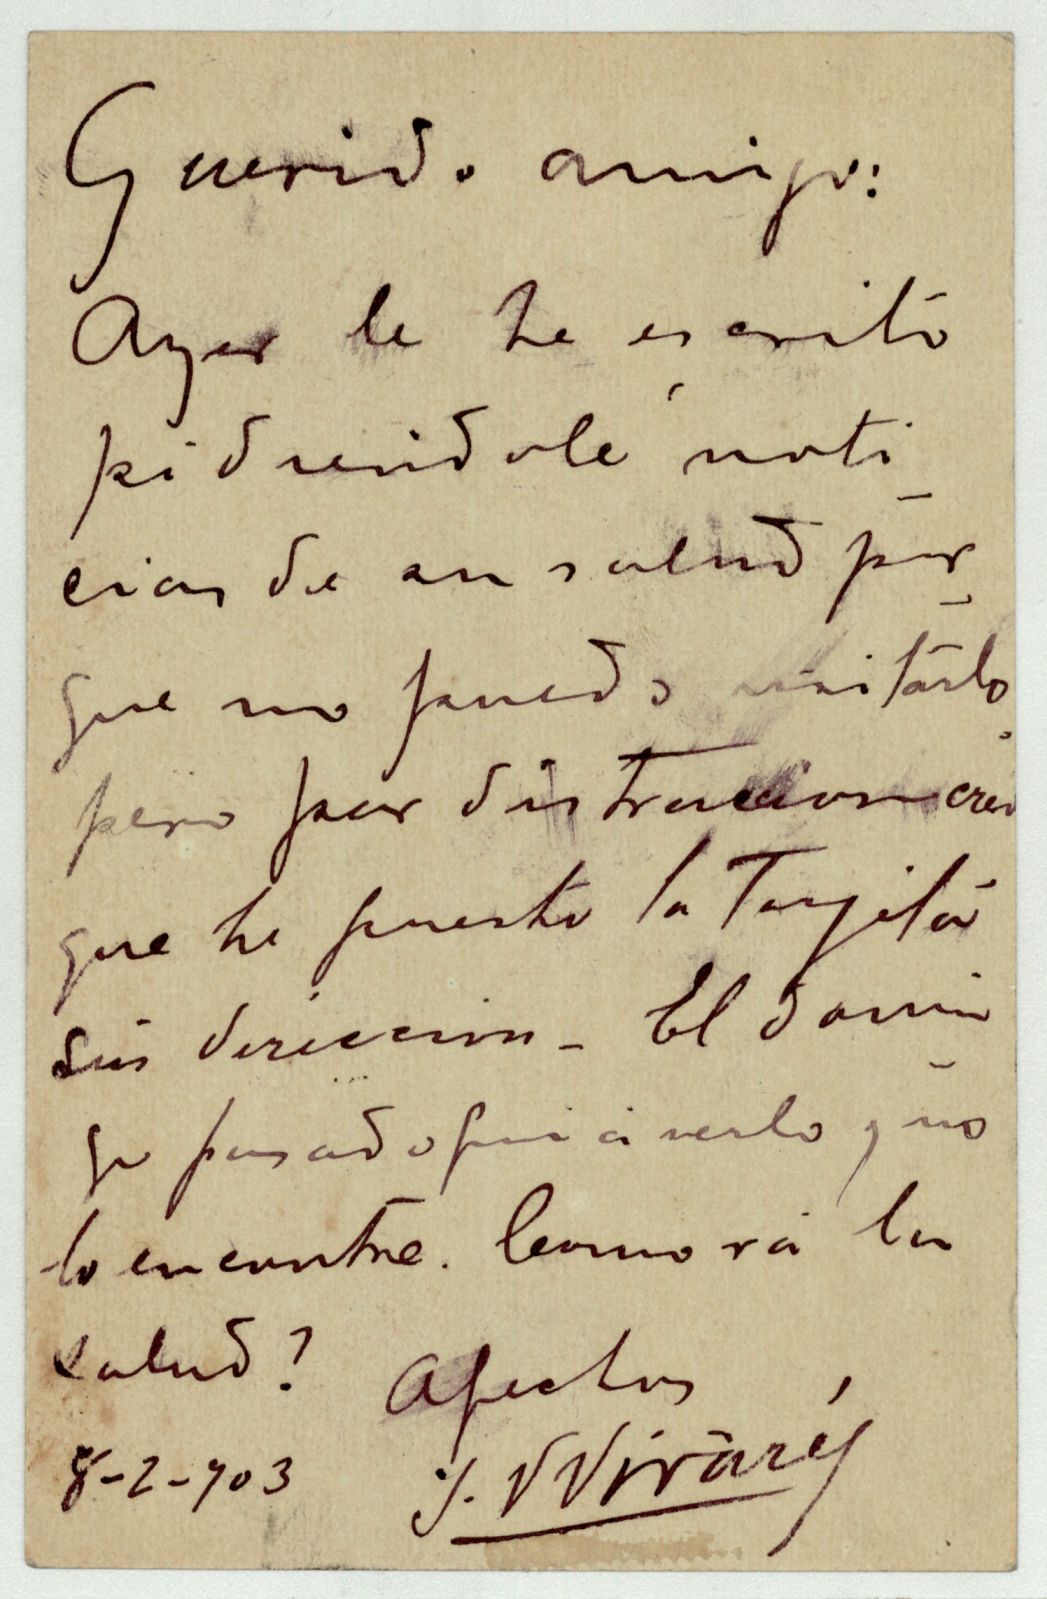 Querido amigo:
Ayer le he escrito
pidiendole noti
cias de su salud por
que no puedo visitarlo
pero por distraccion creo
que he puesto la targeta
sin direccion - El domin
go pasado fui a verlo y no
lo encontre. Como va la
salud? Afectos
8-2-903